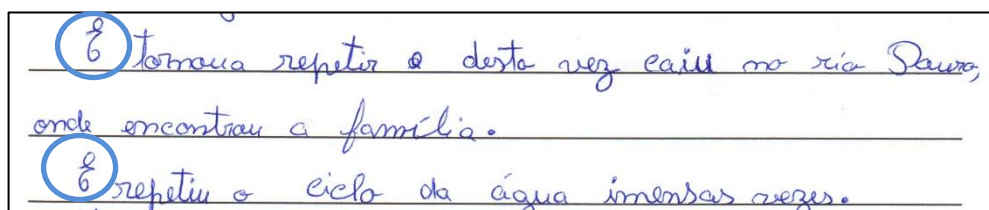 E tornou a repetir e desta vez caiu no rio Douro,
onde encontrou a família.
E repetiu o ciclo da água imensas vezes.